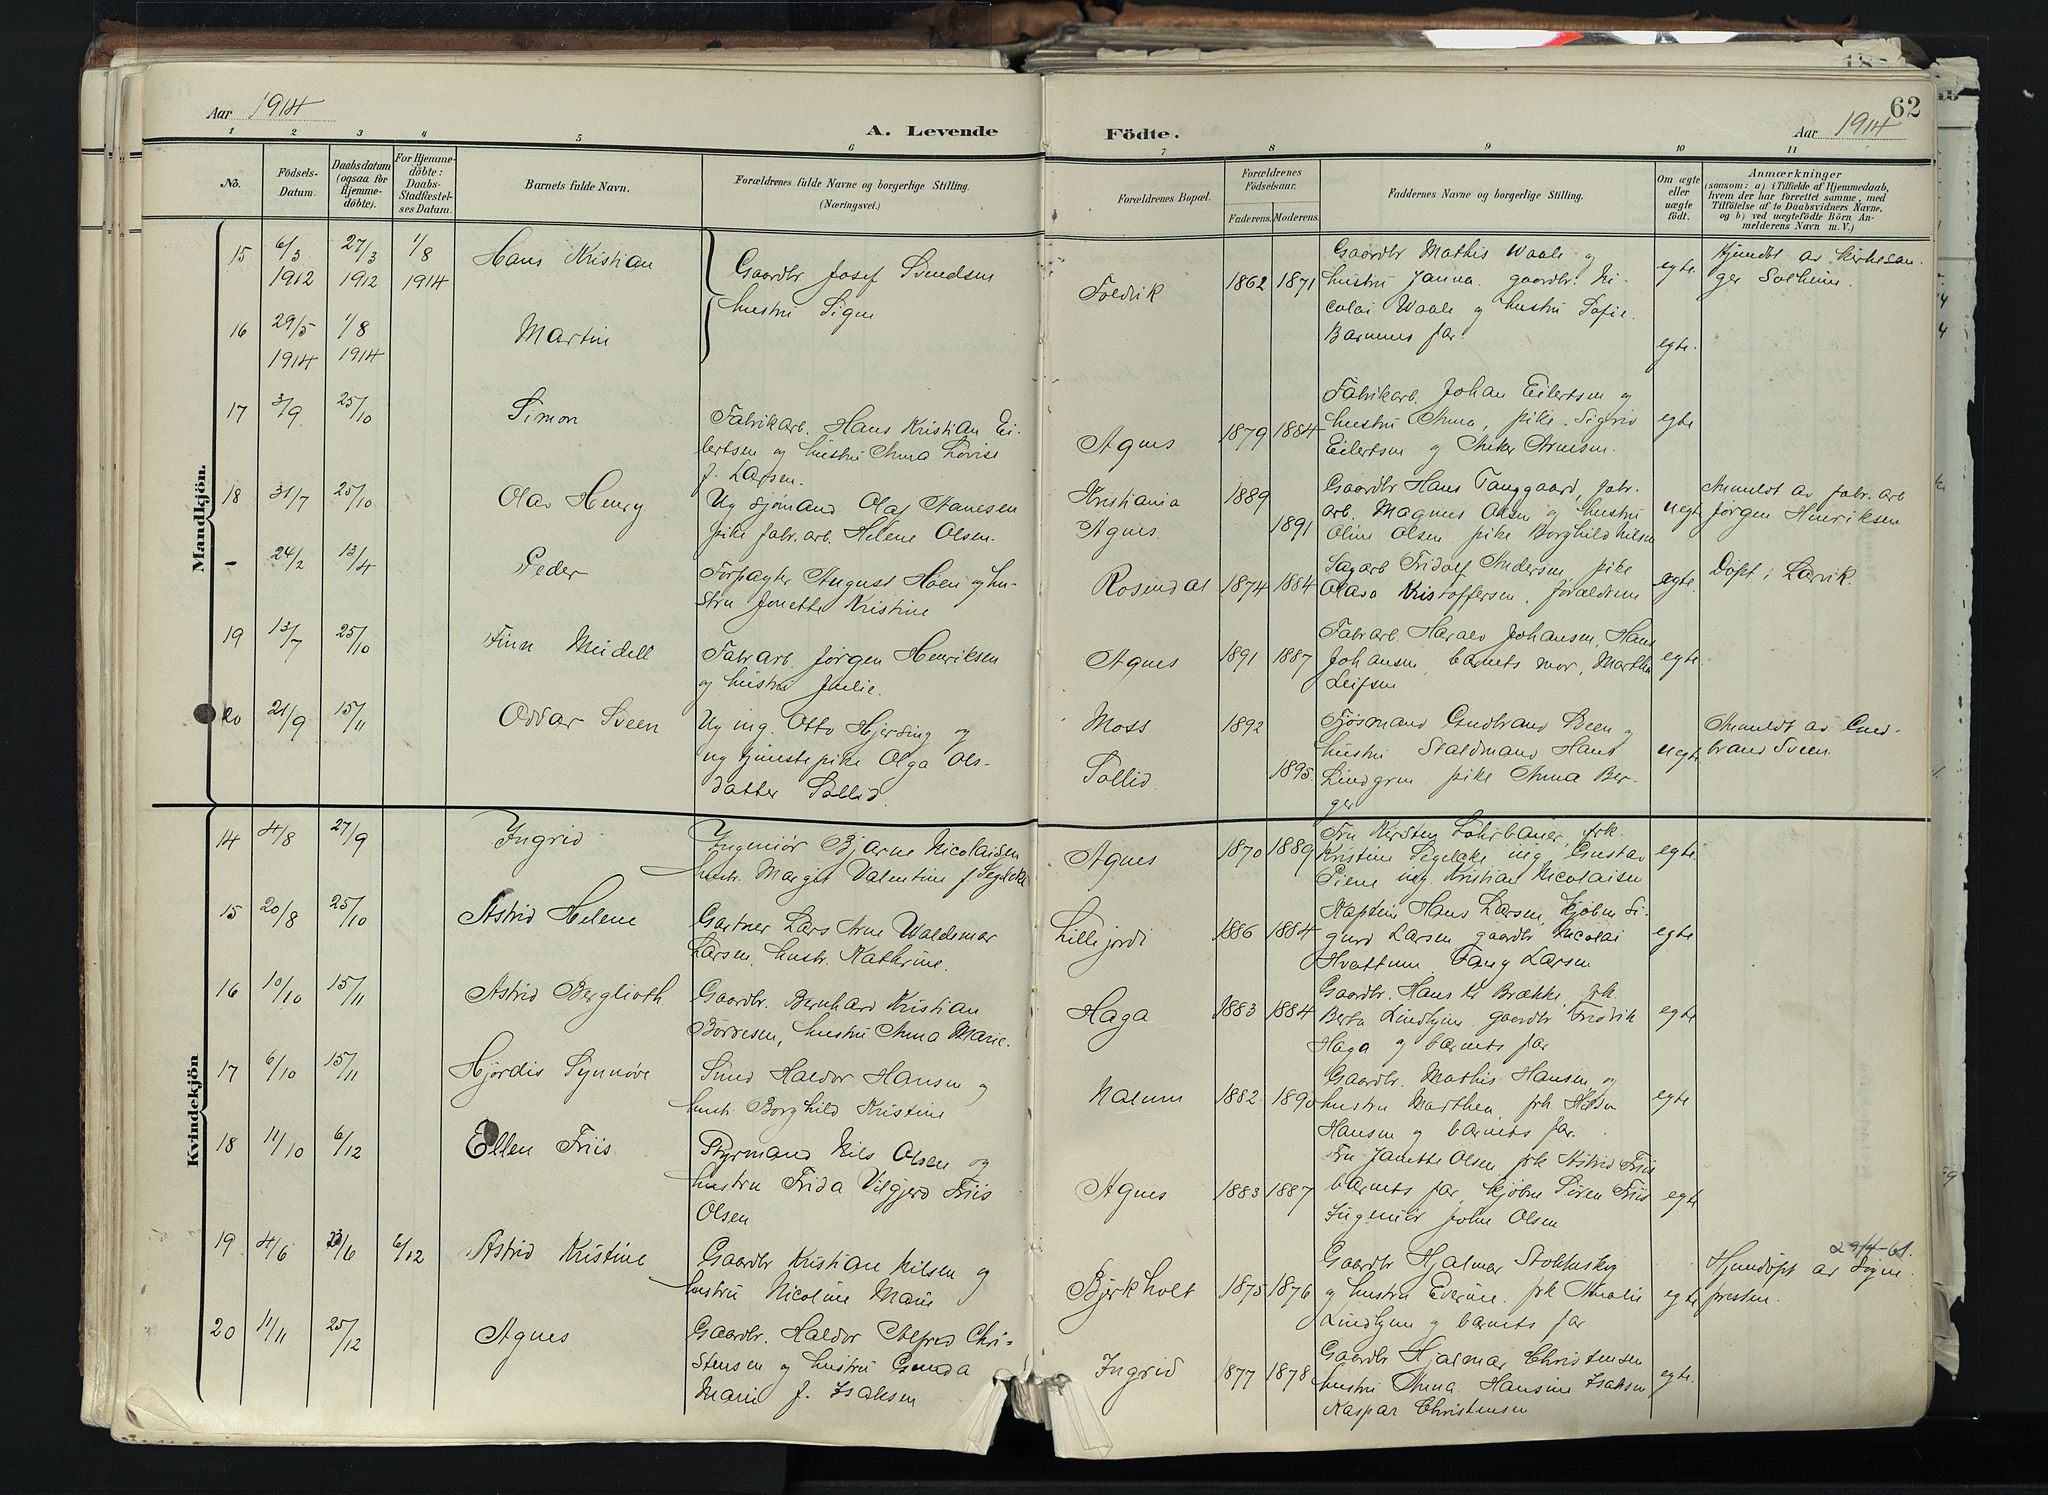 Aar 1914
A. Levende
Födte.
62
Aar 1914
1 2 3 4 5 6 7 8 9 10 11
No.
Födsels-
Datum.
Daabsdatum
(ogsaa for
Hjemme-
döbte).
For Hjemme-
döbte:
Daabs-
Stadfæstel-
ses Datum.
Barnets fulde Navn.
Forældrenes fulde Navne og borgerlige Stilling.
(Næringsvei.)
Forældrenes Bopæl.
Forældrenes
Födselsaar.
Faderens. Moderens.
Faddernes Navne og borgerlige Stilling.
Om ægte
eller
uægte
født.
Anmærkninger
(saasom: a) i Tilfælde af Hjemmedaab,
hvem der har forrettet samme, med
Tilföielse af to Daabsvidners Navne,
og b) ved uægtefödte Börn An-
melderens Navn m. V.)
Mandkjön.
15 6/3 27/3 1/8 Hans Kristian
1912 1912 1914
Gaardbr Josef Svendsen
hustru Signe
Fredrik 1862 1871
Gaardbr Mathis Waale og
hustru Janna. gaardbr. Ni-
colai Waale og hustru Sofie.
Barnets far.
egte
Hjemdbt av kirkesan-
ger Solheim.
16 29/5 1/8 Martin
1914 1914
egte.
17 3/9 25/10 Simon
Fabrikarb. Hans Kristian Ei-
lertsen og hustru Anna Lovise
f. Larsen.
Agnes 1879 1884
Fabrikarb. Johan Eilertsen og
hustru Anna, pike Sigrid
Eilertsen og Anker Arnesen.
egte
18 31/7 25/10 Olav Henry
Ug sjømand Olaf Hanesen
pike fabr. arb. Helene Olsen.
Kristiania 1889
Agnes. 1891
Gaardbr Hans Tanggaard, fabr.
arb. Magnus Olsen og hustru
Oline Olsen, pike Borghild Nilsen
uegt
Anmeldt av fabr. arb
Jørgen Henriksen
- 24/2 13/4 Peder
Forpagter August Høen og hu-
stru Jonette Kristine
Rosendal 1874 1884
Sagarb Fridolf Andersen, pike
Olava Kristoffersen, forældrene
egte.
Døpt i Larvik.
19 13/7 25/10 Finn Meidell
Fabrarb. Jørgen Henriksen
og hustru Julie.
Agnes 1891 1887
Fabrarb. Harald Johansen, Hans
Johansen barnets mor, Marthin
Leifsen
egte
20 21/9 15/11 Oddvar Sveen
Ug ing. Otto Hjersing og
ug tjenestepike Olga Ols-
datter Sollid.
Moss 1892
Sollid. 1895.
Fjøsmand Gudbrand Sveen og
hustru Staldmand Hans
Lindgren pike Anna Ber-
ger
uegte
Anmeldt av Gud-
brand Sveen
Kvindekjön
14 4/8 27/9 Ingrid
Ingeniør Bjarne Nicolaisen
hustr. Margit Valentine f Segelcke
Agnes 1870 1889
Fru Kirsten Lohrbauer, frk.
Kristine Segelcke ing. Gustav
Piene ing. Kristian Nicolaisen
egte
15 20/8 25/10 Astrid Helene
Gartner Lars Arne Waldemar
Larsen, hustr. Kathrine.
Lillejordi 1886 1884
Kaptein Hans Larsen, kjøbm Si-
gurd Larsen gaardbr Nicolai
Hvattum, Fang Larsen
egte
16 10/10 15/11 Astrid Berglioth
Gaardbr. Bernhard Kristian
Børresen, hustru Anna Marie.
Haga 1883 1884
Gaardbr. Hans Kr Brække, frk.
Berta Lindhjem gaardbr Fredrik
Haga og barnets far
egte
17 6/10 15/11 Hjørdis Synnøve
Smed Haldor Hansen og
hust. Borghild Kristine
Nalum 1882 1890
Gaardbr. Mathis Hansen og
hustru Marthea, frk Hilda
Hansen og barnets far.
egte
18 11/10 6/12 Ellen Friis
Styrmand Nils Olsen og
hustru Frida Vilgjerd Friis
Olsen
Agnes 1883 1887
Fru Janette Olsen, frk Astrid Friis
barnets far, kjøbm Søren Friis
Ingeniør John Olsen
egte
19 4/6 23/6 6/12 Astrid Kristine
Gaardbr Kristian Nilsen og
hustru Nicoline Marie
Bjerkholt 1875 1876
Gaardbr Hjalmar Stokkenskog
og hustru Everine. frk Amalie
Lindhjem og barnets far
egte
29/4-61.
Hjemdøpt av Sogne-
presten.
20 11/11 25/12 Agnes
Gaardbr. Haldor Alfred Chri-
stensen og hustru Gunda
Marie f. Isaksen
Ingrid 1877 1878
Gaardbr Hjalmar Christensen
hustru Anna. Hansine Isaksen
Kaspar Christensen
egte.